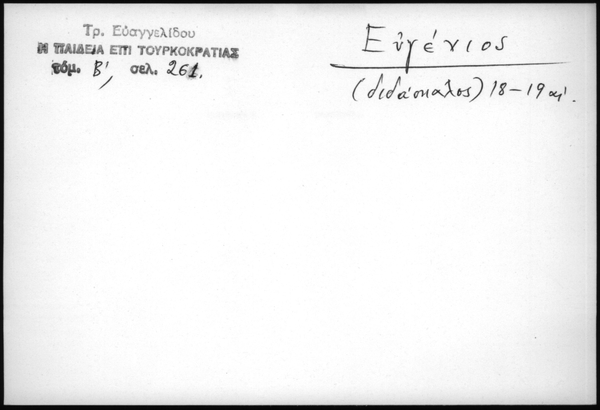 Τρ. Εὐαγγελίδου
Η ΠΑΙΔΕΙΑ ΕΠΙ ΤΟΥΡΚΟΚΡΑΤΙΑΣ
τόμ. Β', σελ. 261.
Εὐγένιος
(διδάσκαλος) 18-19 αἰ.